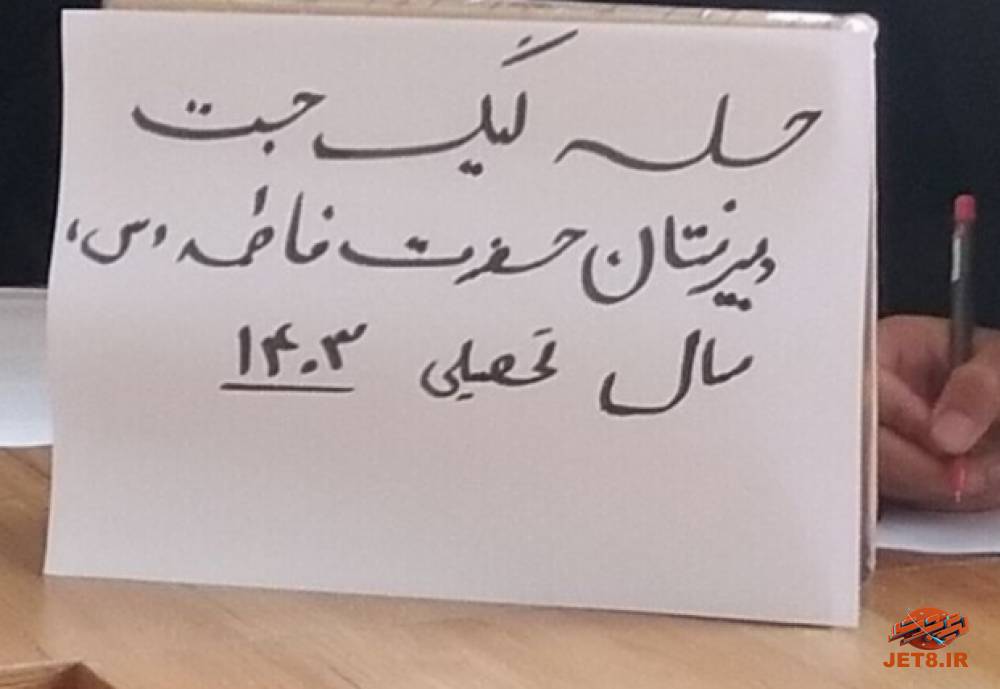 جلسه لیگ جت
دبیرستان حضرت فاطمه (س)
سال تحصیلی ۱۴۰۳
JET8.IR